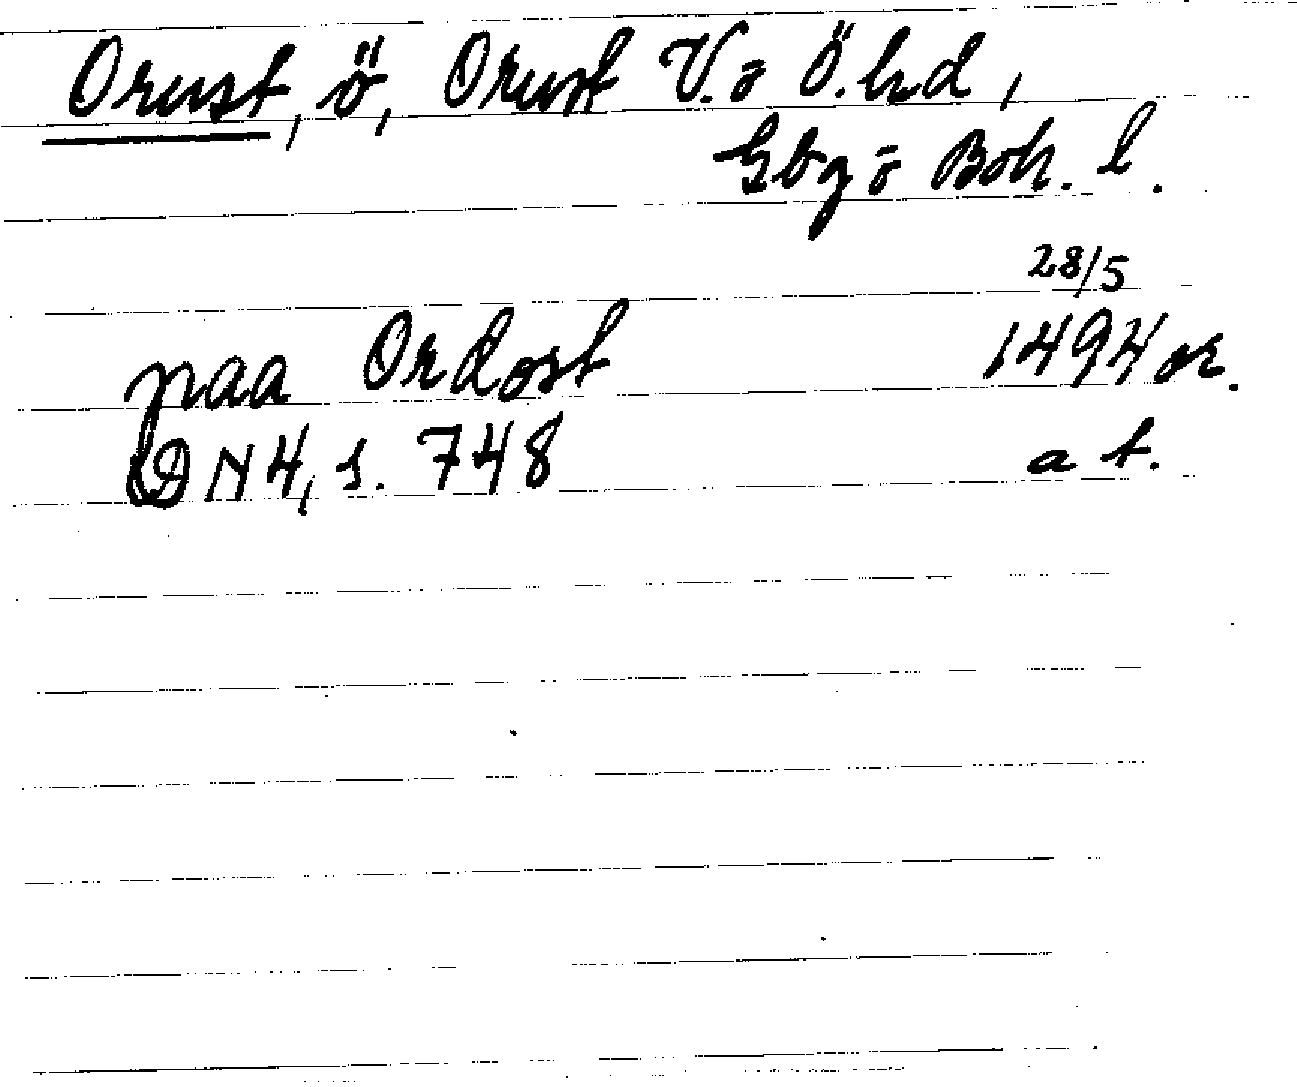 Orust, ö, Orust V. o Ö. hd,
Gbg o Boh. l.
28/5
paa Ordost 1494 or.
DN 4, s. 748 a t.